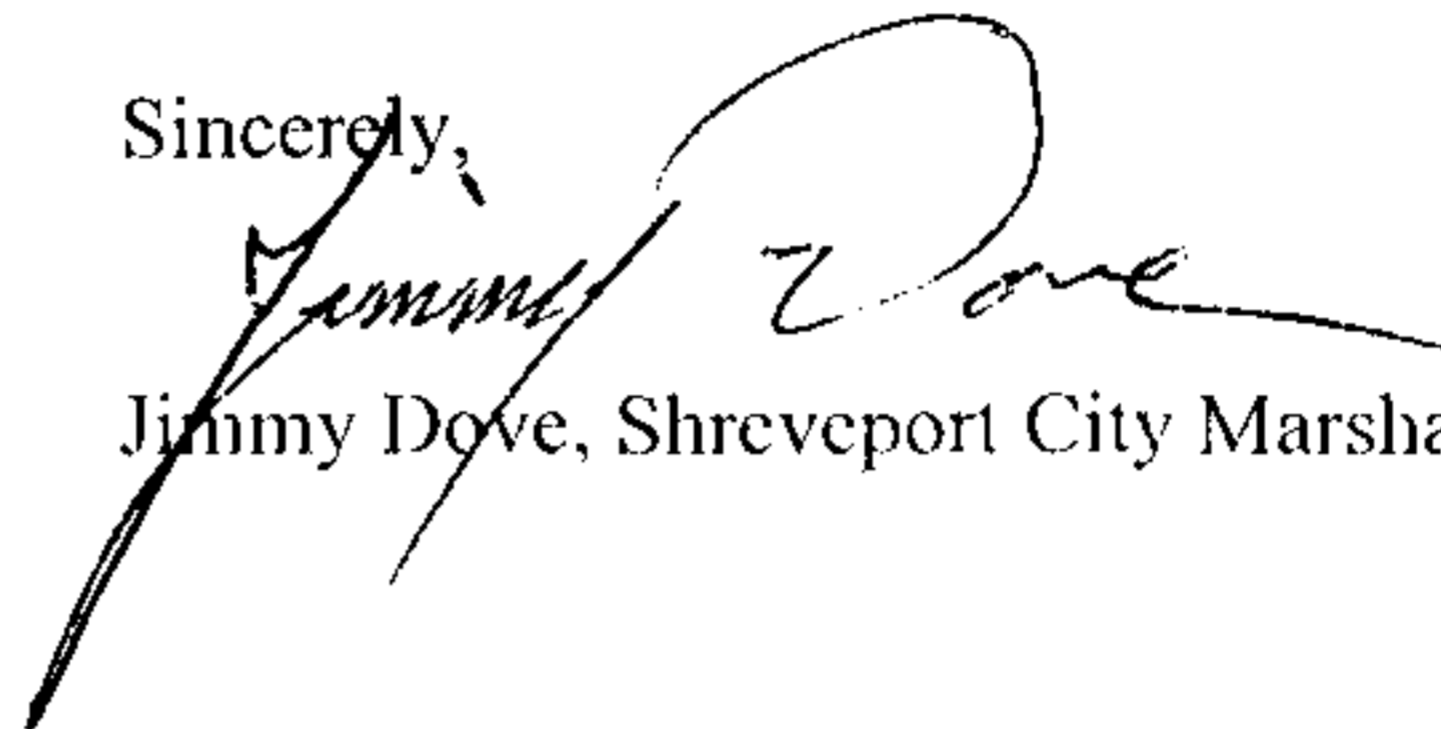 Sincerely,
Jimmy Dove
Jimmy Dove, Shreveport City Marsha